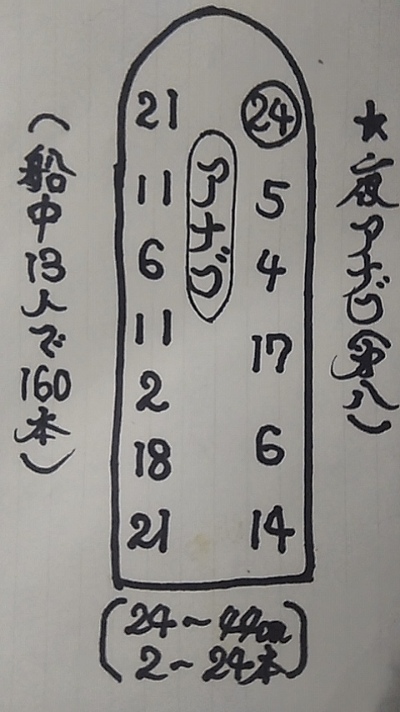 ★夜アナゴ(第八)
アナゴ
21 ㉔
11 5
6 4
11 17
2 6
18 14
21
(船中13人で160本)
(24〜44cm
2〜24本)